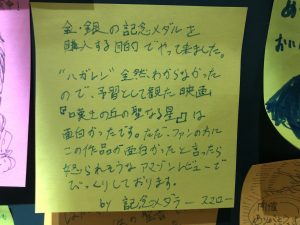 金・銀の記念メダルを
購入する目的でやって来ました。
"ハガレン"全然、わからなかった
ので、予習として観た映画
『嘆きの丘の聖なる星』は
面白かったです。ただ、ファンの方に
この作品が面白かったと言ったら
怒られそうなアマゾンレビューで
びっくりしております。
by 記念メダラー スマロー
開催